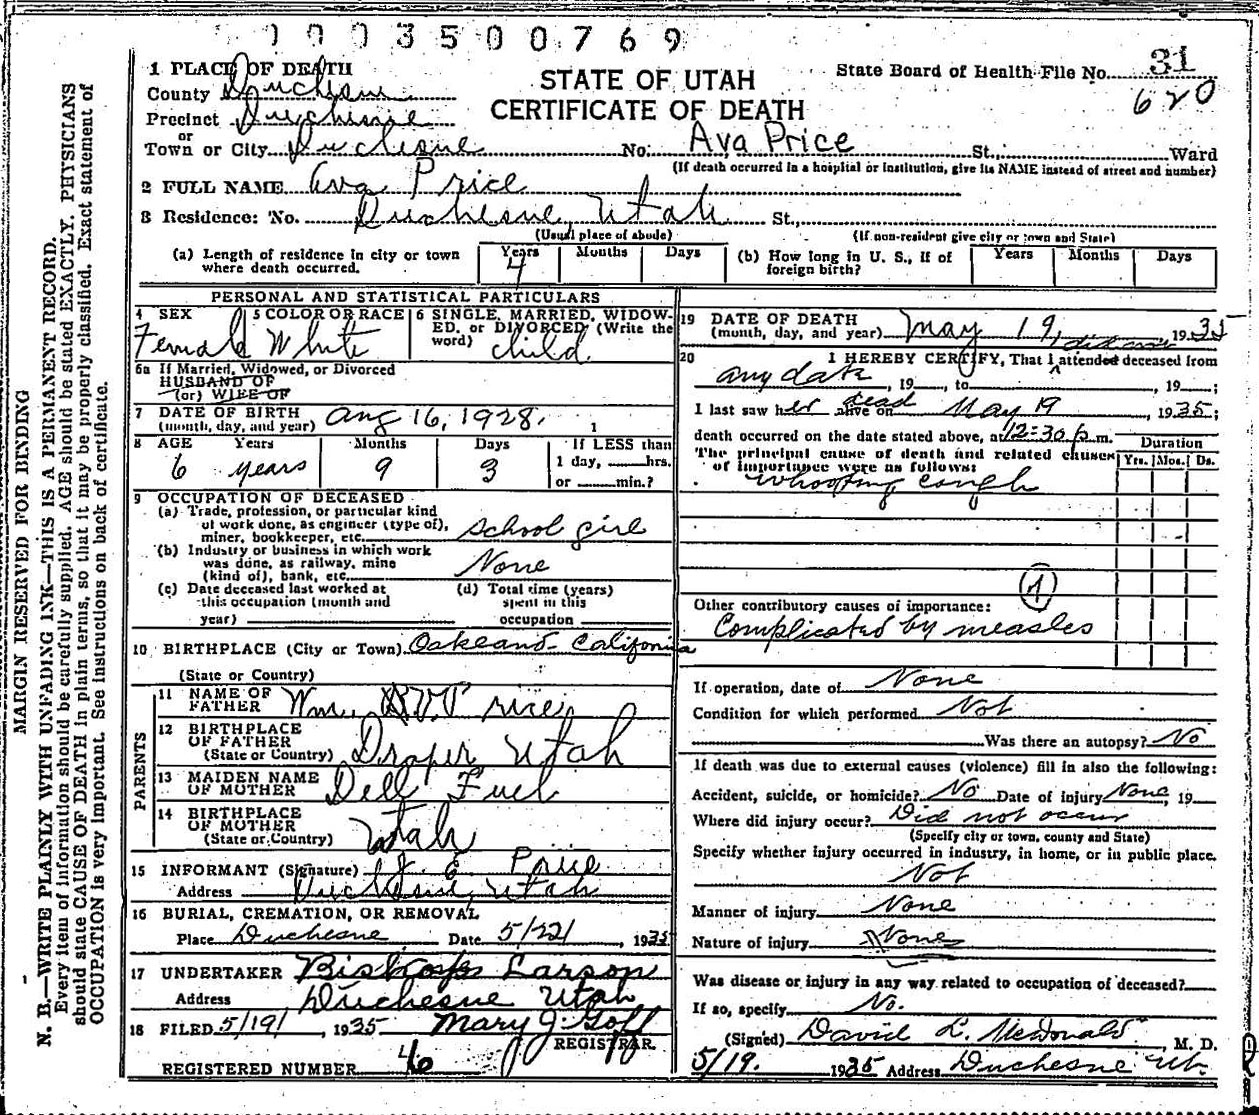 0003500769
1 PLACE OF DEATH
STATE OF UTAH
CERTIFICATE OF DEATH
State Board of Health File No. 31
620
County Duchesne
Precinct Duchesne
or
Town or City Duchesne No. Ava Price St. Ward
(If death occurred in a hospital or institution, give its NAME instead of street and number)
2 FULL NAME Ava Price
3 Residence: No. Duchesne, Utah St.
(Usual place of abode) (If non-resident give city or town and State)
(a) Length of residence in city or town where death occurred. Years 4 Months Days (b) How long in U. S., if of foreign birth? Years Months Days
PERSONAL AND STATISTICAL PARTICULARS
4 SEX Female
5 COLOR OR RACE White
6 SINGLE, MARRIED, WIDOWED, or DIVORCED (Write the word) child
6a If Married, Widowed, or Divorced
HUSBAND OF
(or) WIFE OF
7 DATE OF BIRTH (month, day, and year) Aug 16, 1928.
8 AGE Years Months Days If LESS than
6 years 9 3 1 day, hrs.
or min.?
9 OCCUPATION OF DECEASED
(a) Trade, profession, or particular kind
of work done, as engineer (type of),
miner, bookkeeper, etc. School girl
(b) Industry or business in which work
was done, as railway, mine
(kind of), bank, etc. None
(c) Date deceased last worked at
this occupation (month and
year)
(d) Total time (years)
spent in this
occupation
10 BIRTHPLACE (City or Town) Oakland California
(State or Country)
PARENTS
11 NAME OF FATHER Wm. Price
12 BIRTHPLACE OF FATHER (State or Country) Draper Utah
13 MAIDEN NAME OF MOTHER Dell
14 BIRTHPLACE OF MOTHER (State or Country) Utah
15 INFORMANT (Signature) E. Price
Address Duchesne, Utah
16 BURIAL, CREMATION, OR REMOVAL
Place Duchesne Date 5/22/, 1935
17 UNDERTAKER Larson
Address Duchesne Utah
18 FILED 5/19/, 1935 Mary J. Goff
REGISTRAR.
REGISTERED NUMBER
19 DATE OF DEATH
(month, day, and year) May 19, 1935
20 I HEREBY CERTIFY, That I did not attended deceased from
any date, 19, to , 19 ;
I last saw her dead alive on May 19, 1935;
death occurred on the date stated above, at 12:30 p m.
Duration
The principal cause of death and related causes Yrs. Mos. Ds.
of importance were as follows:
Whooping cough
1
Other contributory causes of importance:
Complicated by measles
If operation, date of None
Condition for which performed Not
Was there an autopsy? No
If death was due to external causes (violence) fill in also the following:
Accident, suicide, or homicide? No Date of injury None, 19
Where did injury occur? Did not occur
(Specify city or town, county and State)
Specify whether injury occurred in industry, in home, or in public place.
Not
Manner of injury None
Nature of injury None
Was disease or injury in any way related to occupation of deceased?
If so, specify No.
(Signed) David L. McDonald, M. D.
5/19. 1935 Address Duchesne Ut.
MARGIN RESERVED FOR BINDING
N. B.—WRITE PLAINLY WITH UNFADING INK—THIS IS A PERMANENT RECORD.
Every item of information should be carefully supplied. AGE should be stated EXACTLY. PHYSICIANS
should state CAUSE OF DEATH in plain terms, so that it may be properly classified. Exact statement of
OCCUPATION is very important. See instructions on back of certificate.